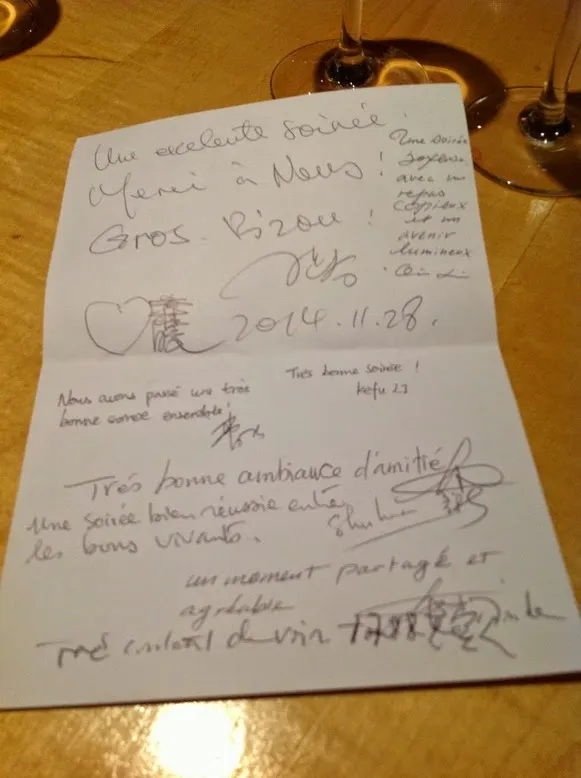 Une excelente soirée
Merci à Nous !
Gros Bizou !
Une soirée
joyeuse
avec un
repas
copieux
et un
avenir
lumineux
2014.11.28.
Nous avons passé une très
bonne soirée ensemble!
Très bonne soirée !
Kefu
Trés bonne ambiance d'amitié
Une soirée bien réussie entre
les bons vivants.
un moment partagé et
agréable
de voir